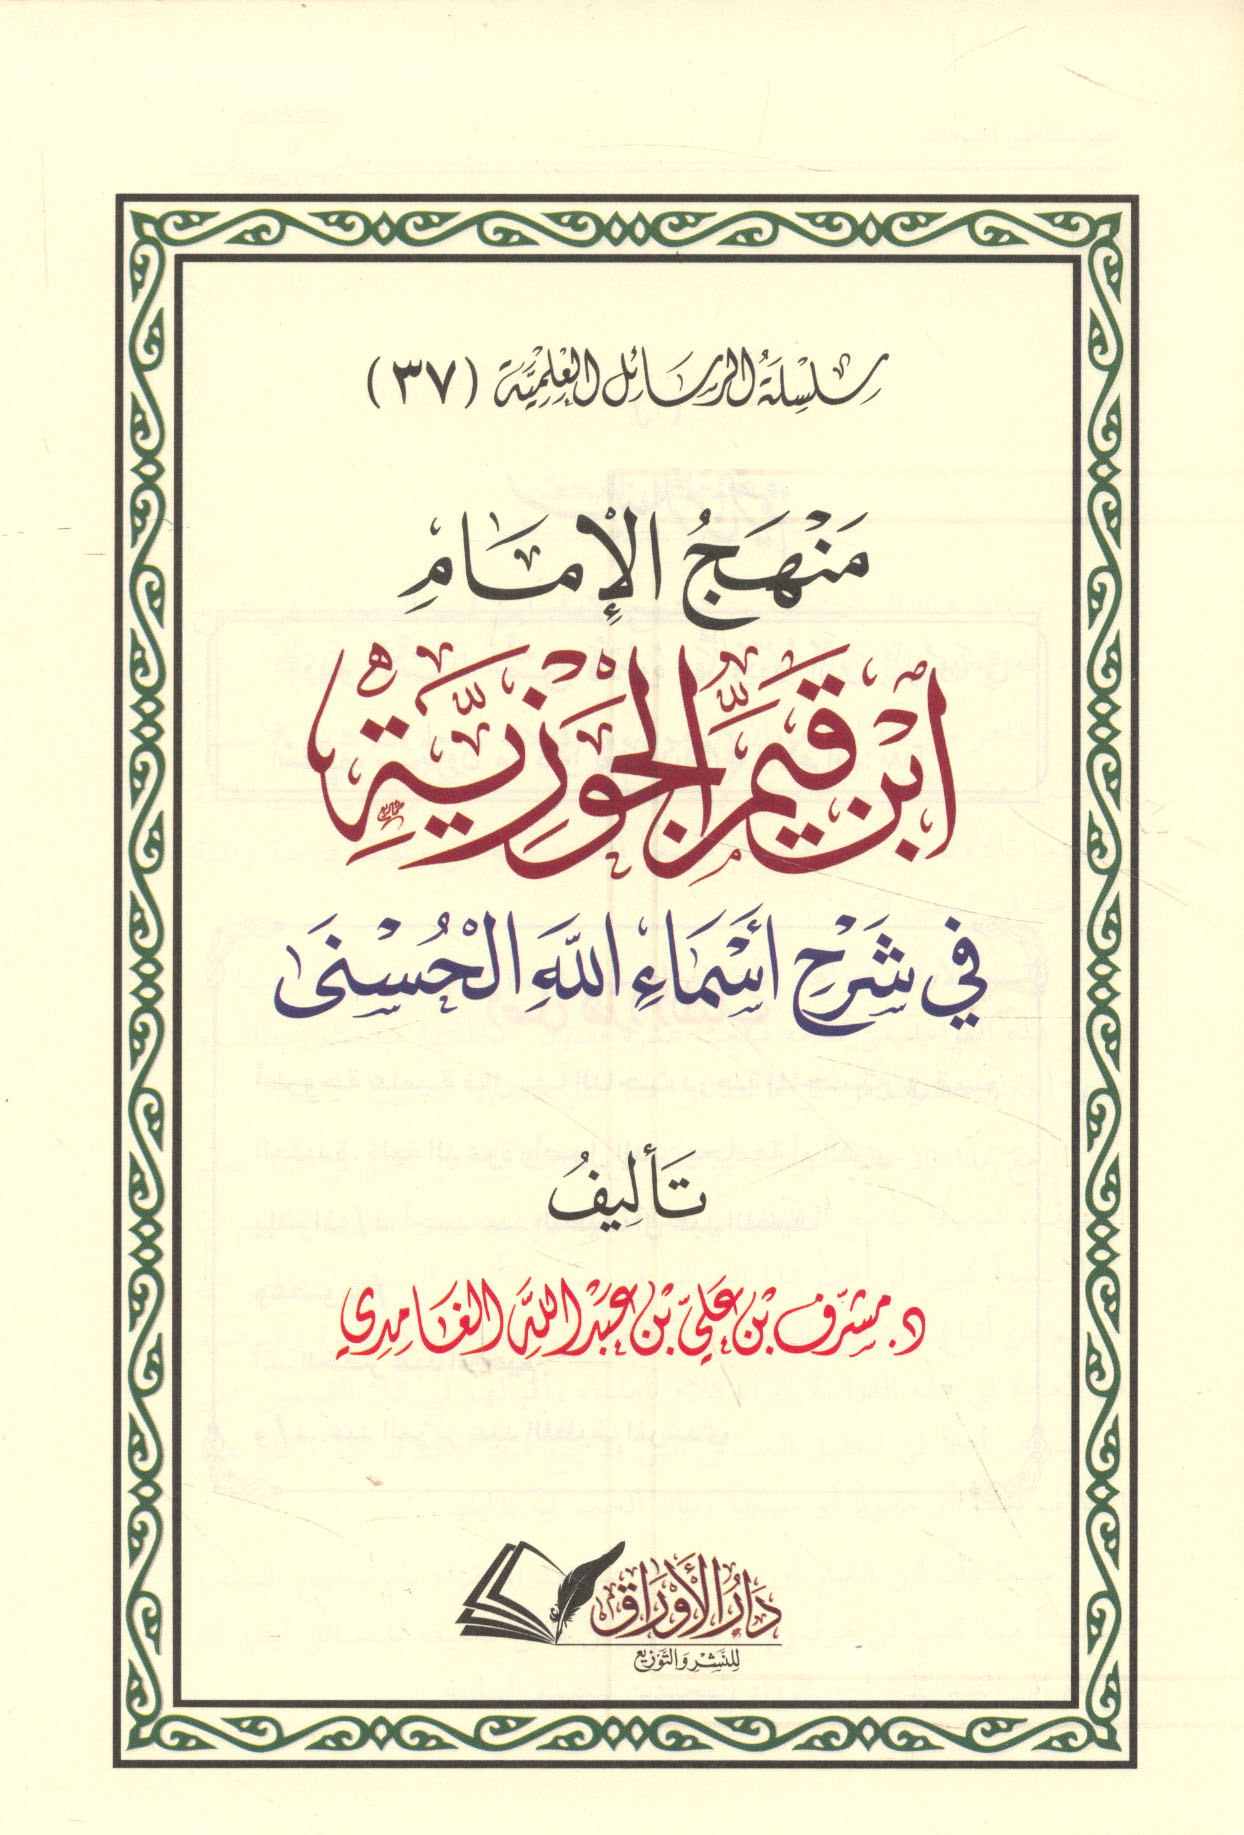 سِلْسِلَةُ الرَّسَائِلِ العِلْمِيَّةِ (٣٧)
مَنْهَجُ الإِمَامِ
ابْنِ قَيِّمِ الجَوْزِيَّةِ
فِي شَرْحِ أَسْمَاءِ اللَّهِ الْحُسْنَى
تَأْلِيفُ
د. مشرف بن علي بن عبد الله الغامدي
دَارُ الأَوْرَاقِ
لِلنَّشْرِ وَالتَّوْزِيعِ